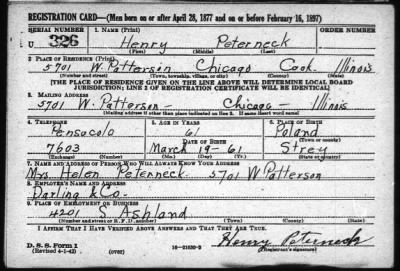 REGISTRATION CARD—(Men born on or after April 28, 1877 and on or before February 16, 1897)
SERIAL NUMBER 1. NAME (Print)
U 326 Henry Peterneck
(First) (Middle) (Last)
2. PLACE OF RESIDENCE (Print)
5701 W. Patterson Chicago Cook Illinois
(Number and street) (Town, township, village, or city) (County) (State)
[THE PLACE OF RESIDENCE GIVEN ON THE LINE ABOVE WILL DETERMINE LOCAL BOARD
JURISDICTION; LINE 2 OF REGISTRATION CERTIFICATE WILL BE IDENTICAL]
3. MAILING ADDRESS
5701 W. Patterson — Chicago — Illinois
[Mailing address if other than place indicated on line 2. If same insert word same]
4. TELEPHONE 5. AGE IN YEARS 6. PLACE OF BIRTH
Pensacolo 61 Poland
DATE OF BIRTH (Town or county)
7603 March 19 - 61 Strey
(Exchange) (Number) (Mo.) (Day) (Yr.) (State or country)
7. NAME AND ADDRESS OF PERSON WHO WILL ALWAYS KNOW YOUR ADDRESS
Mrs. Helen Peterneck - 5701 W. Patterson
8. EMPLOYER'S NAME AND ADDRESS
Darling & Co.
9. PLACE OF EMPLOYMENT OR BUSINESS
4201 S. Ashland
(Number and street or R. F. D. number) (Town) (County) (State)
I AFFIRM THAT I HAVE VERIFIED ABOVE ANSWERS AND THAT THEY ARE TRUE.
D. S. S. Form 1 Henry Peterneck
(Revised 4-1-42) (over) 16—21630-2 (Registrant's signature)